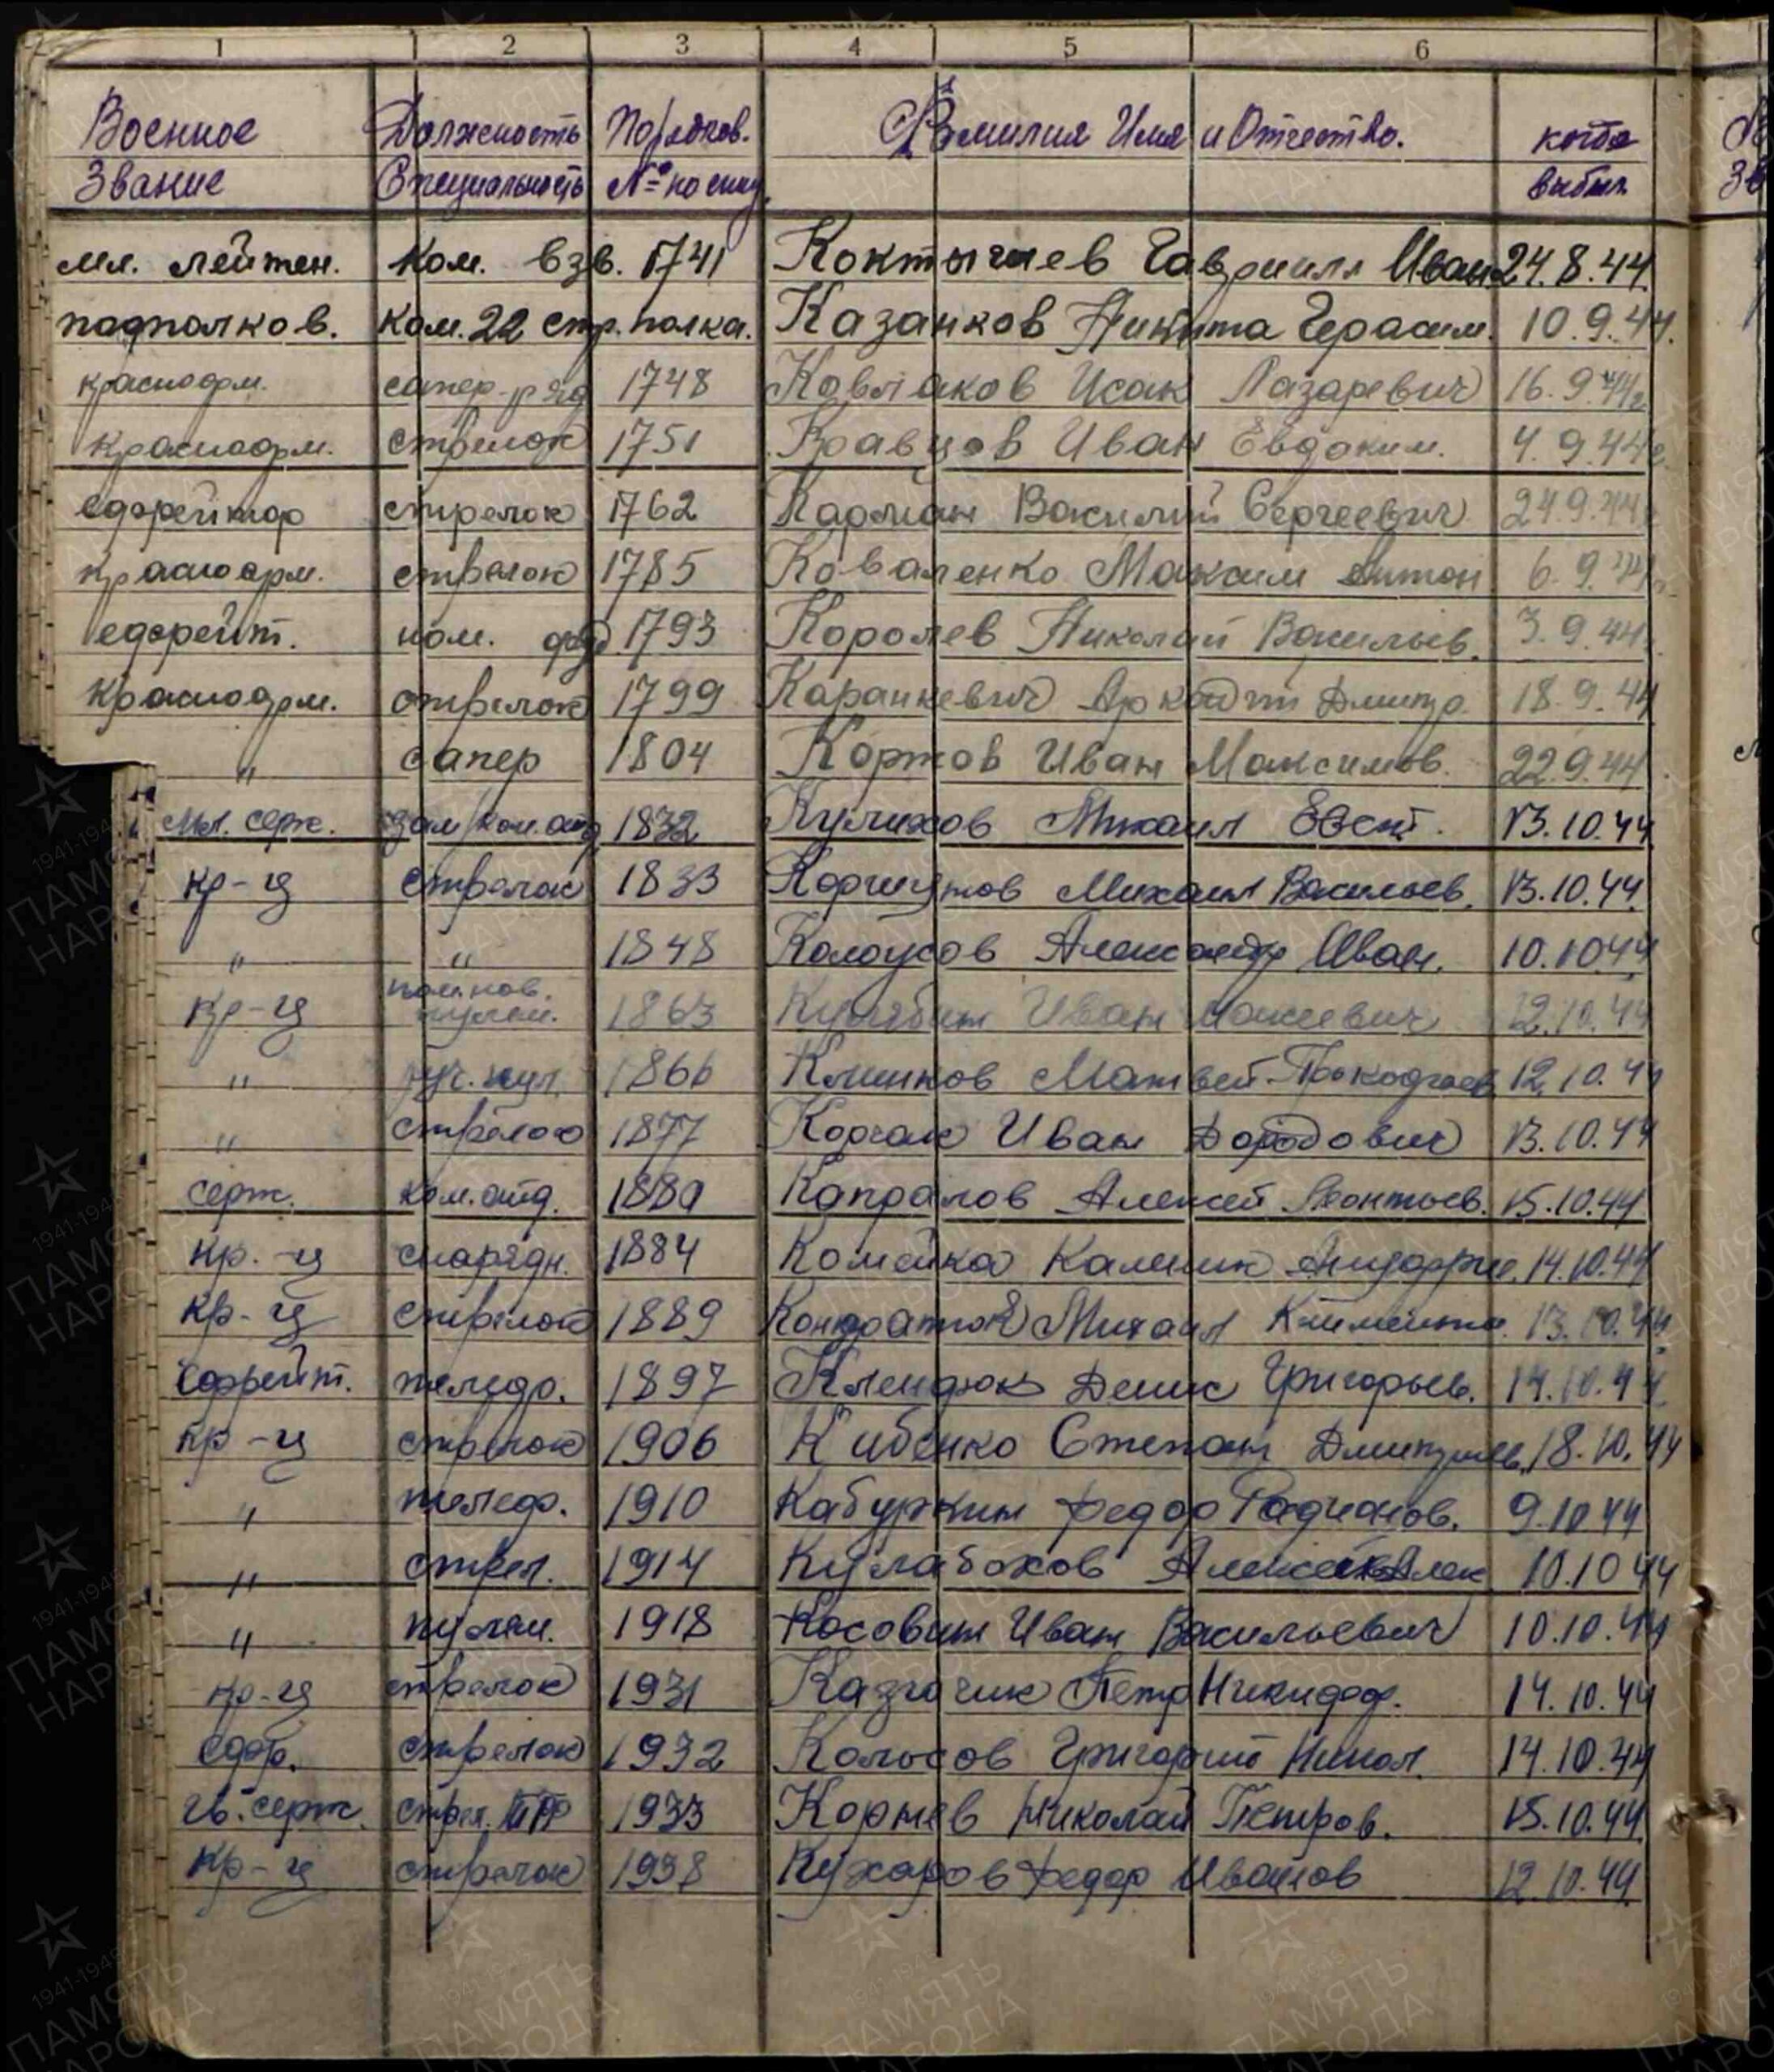 1 2 3 4 5 6
Военное Должность Порядков. Фамилия Имя и Отчество. когда
Звание Специальность №= по спис. выбыл
мл. лейтен. Ком. взв. 1741 Гавриил Иван 24.8.44
подполков. Ком. 22 стр. полка. Казанков Никита Герасим. 10.9.44.
красноарм. сапер-ряд 1748 Исак Лазаревич 16.9.44г
Красноарм. стрелок 1751 Кравцов Иван Евдоким. 4.9.44г
ефрейтор стрелок 1762 Василий Сергеевич 24.9.44г
Красноарм. стрелок 1785 Коваленко Максим Антон 6.9.44г
ефрейт. 1793 Королев Николай Васильев. 3.9.44г
Красноарм. стрелок 1799 Каранкевич Аркадий Дмитр. 18.9.44
" сапер 1804 Иван Максимов. 22.9.44
Мл. серж. зам ком. отд 1832 Михаил 13.10.44
Кр-ц стрелок 1833 Михаил Васильев. 13.10.44
" " 1848 Колоусов Александр Иван. 10.10.44
Кр-ц 1863 Иван 12.10.44
" руч. пул. 1866 Матвей Прокофьев 12.10.44
" стрелок 1877 Корчак Иван 13.10.44
серж. ком. отд. 1880 Капралов Алексей Леонтьев. 15.10.44
Кр.-ц снарядн. 1884 14.10.44
Кр-ц стрелок 1889 Михаил 13.10.44
Ефрейт. телефо. 1897 Денис Григорьев. 14.10.44
Кр-ц стрелок 1906 Кибенко Степан Дмитриев. 18.10.44
" телеф. 1910 Кабуркин Федор Радионов. 9.10.44
" стрел. 1914 Кулабохов Алексей Алек 10.10.44
" пулем. 1918 Косовин Иван Васильевич 10.10.44
кр-ц стрелок 1931 Петр Никифор. 14.10.44
Ефр. стрелок 1932 Колосов Григорий Никол. 14.10.44
гв. серж. стрел. ПТР 1933 Корнев Николай Петров. 15.10.44
Кр-ц стрелок 1938 Кухаров Федор Иванов 12.10.44